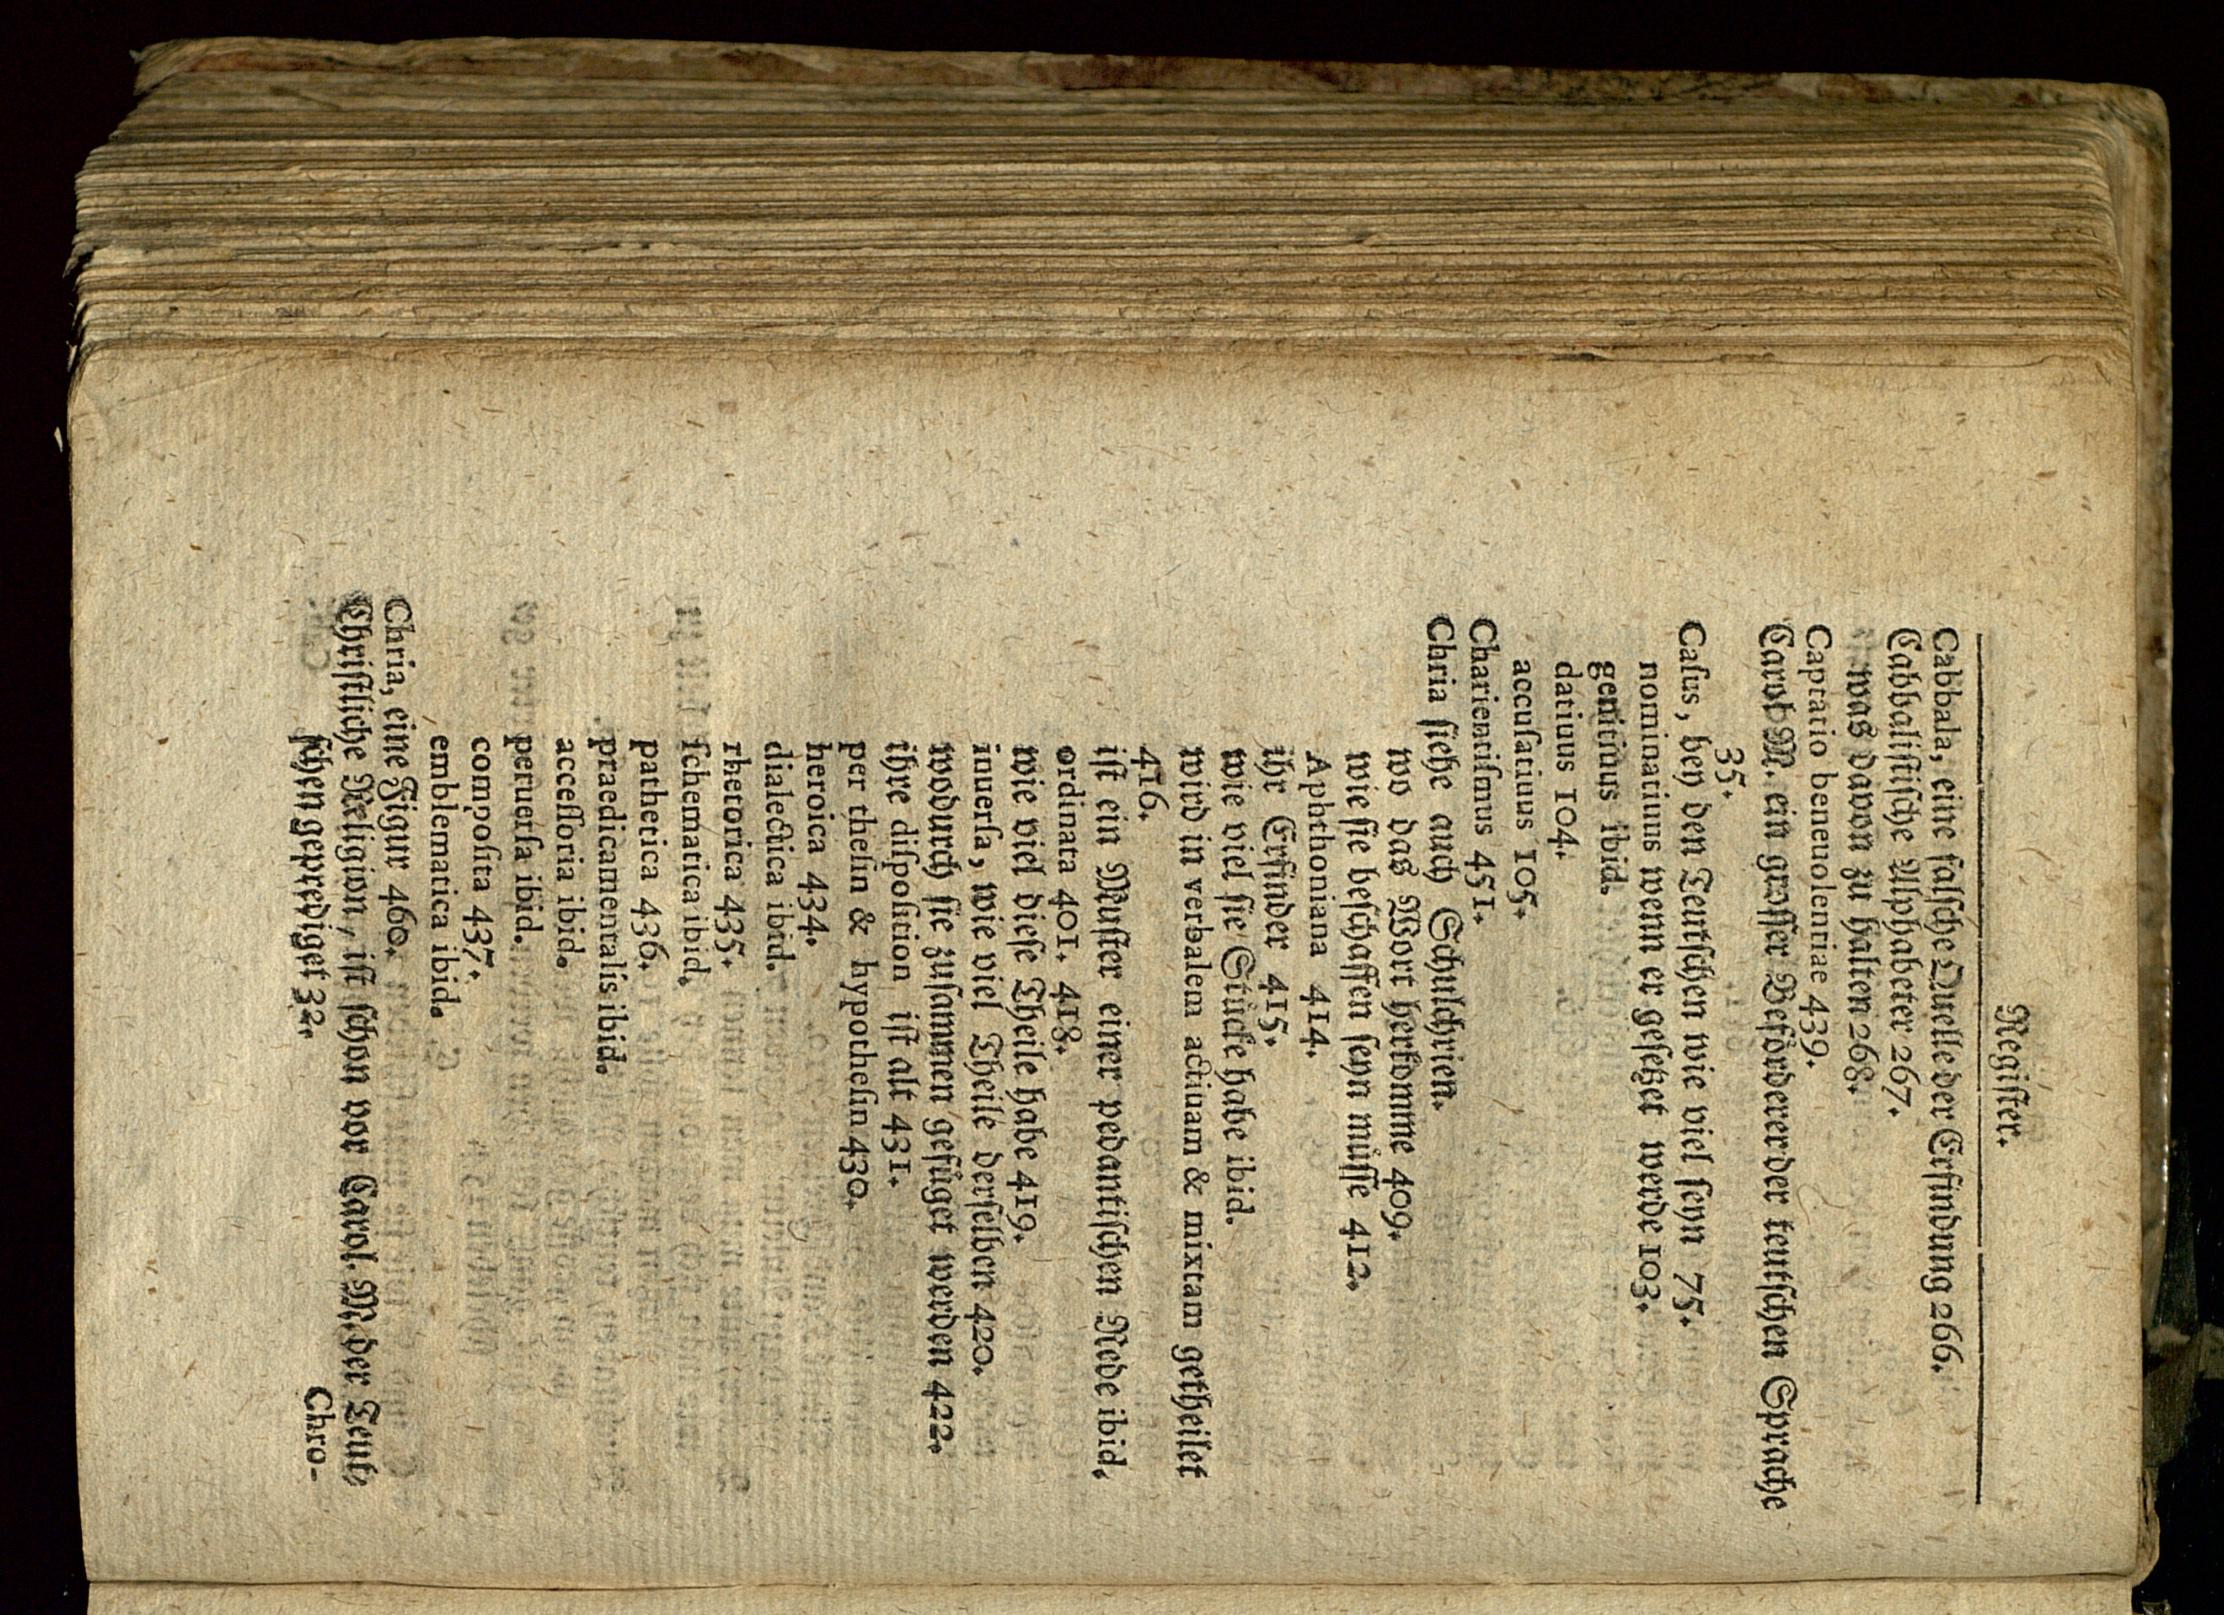 Regiſter.
Cabbala, eine falſche Quelle der Erfindung 266.
Cabbaliſtiſche Alphabeter 267.
was davon zu halten 268.
Captatio beneuolentiae 439.
Carol M. ein groſſer Beförderer der teutſchen Sprache
35.
Caſus, bey den Teutſchen wie viel ſeyn 75.
nominatiuus wenn er geſetzet werde 103.
genitiuus ibid.
datiuus 104.
accuſatiuus 105.
Charientiſmus 451.
Chria ſiehe auch Schulchrien.
wo das Wort herkomme 409.
wie ſie beſchaffen ſeyn müſſe 412.
Aphthoniana 414.
ihr Erfinder 415.
wie viel ſie Stücke habe ibid.
wird in verbalem actiuam & mixtam getheilet
416.
iſt ein Muſter einer pedantiſchen Rede ibid.
ordinata 401. 418.
wie viel dieſe Theile habe 419.
inuerſa, wie viel Theile derſelben 420.
wodurch ſie zuſammen gefüget werden 422.
ihre diſpoſition iſt alt 431.
per theſin & hypotheſin 430.
heroica 434.
dialectica ibid.
rhetorica 435.
ſchematica ibid.
pathetica 436.
praedicamentalis ibid.
acceſſoria ibid.
peruerſa ibid.
compoſita 437.
emblematica ibid.
Chria, eine Figur 460.
Chriſtliche Religion, iſt ſchon vor Carol. M. der Teut-
ſchen geprediget 32.
Chro-